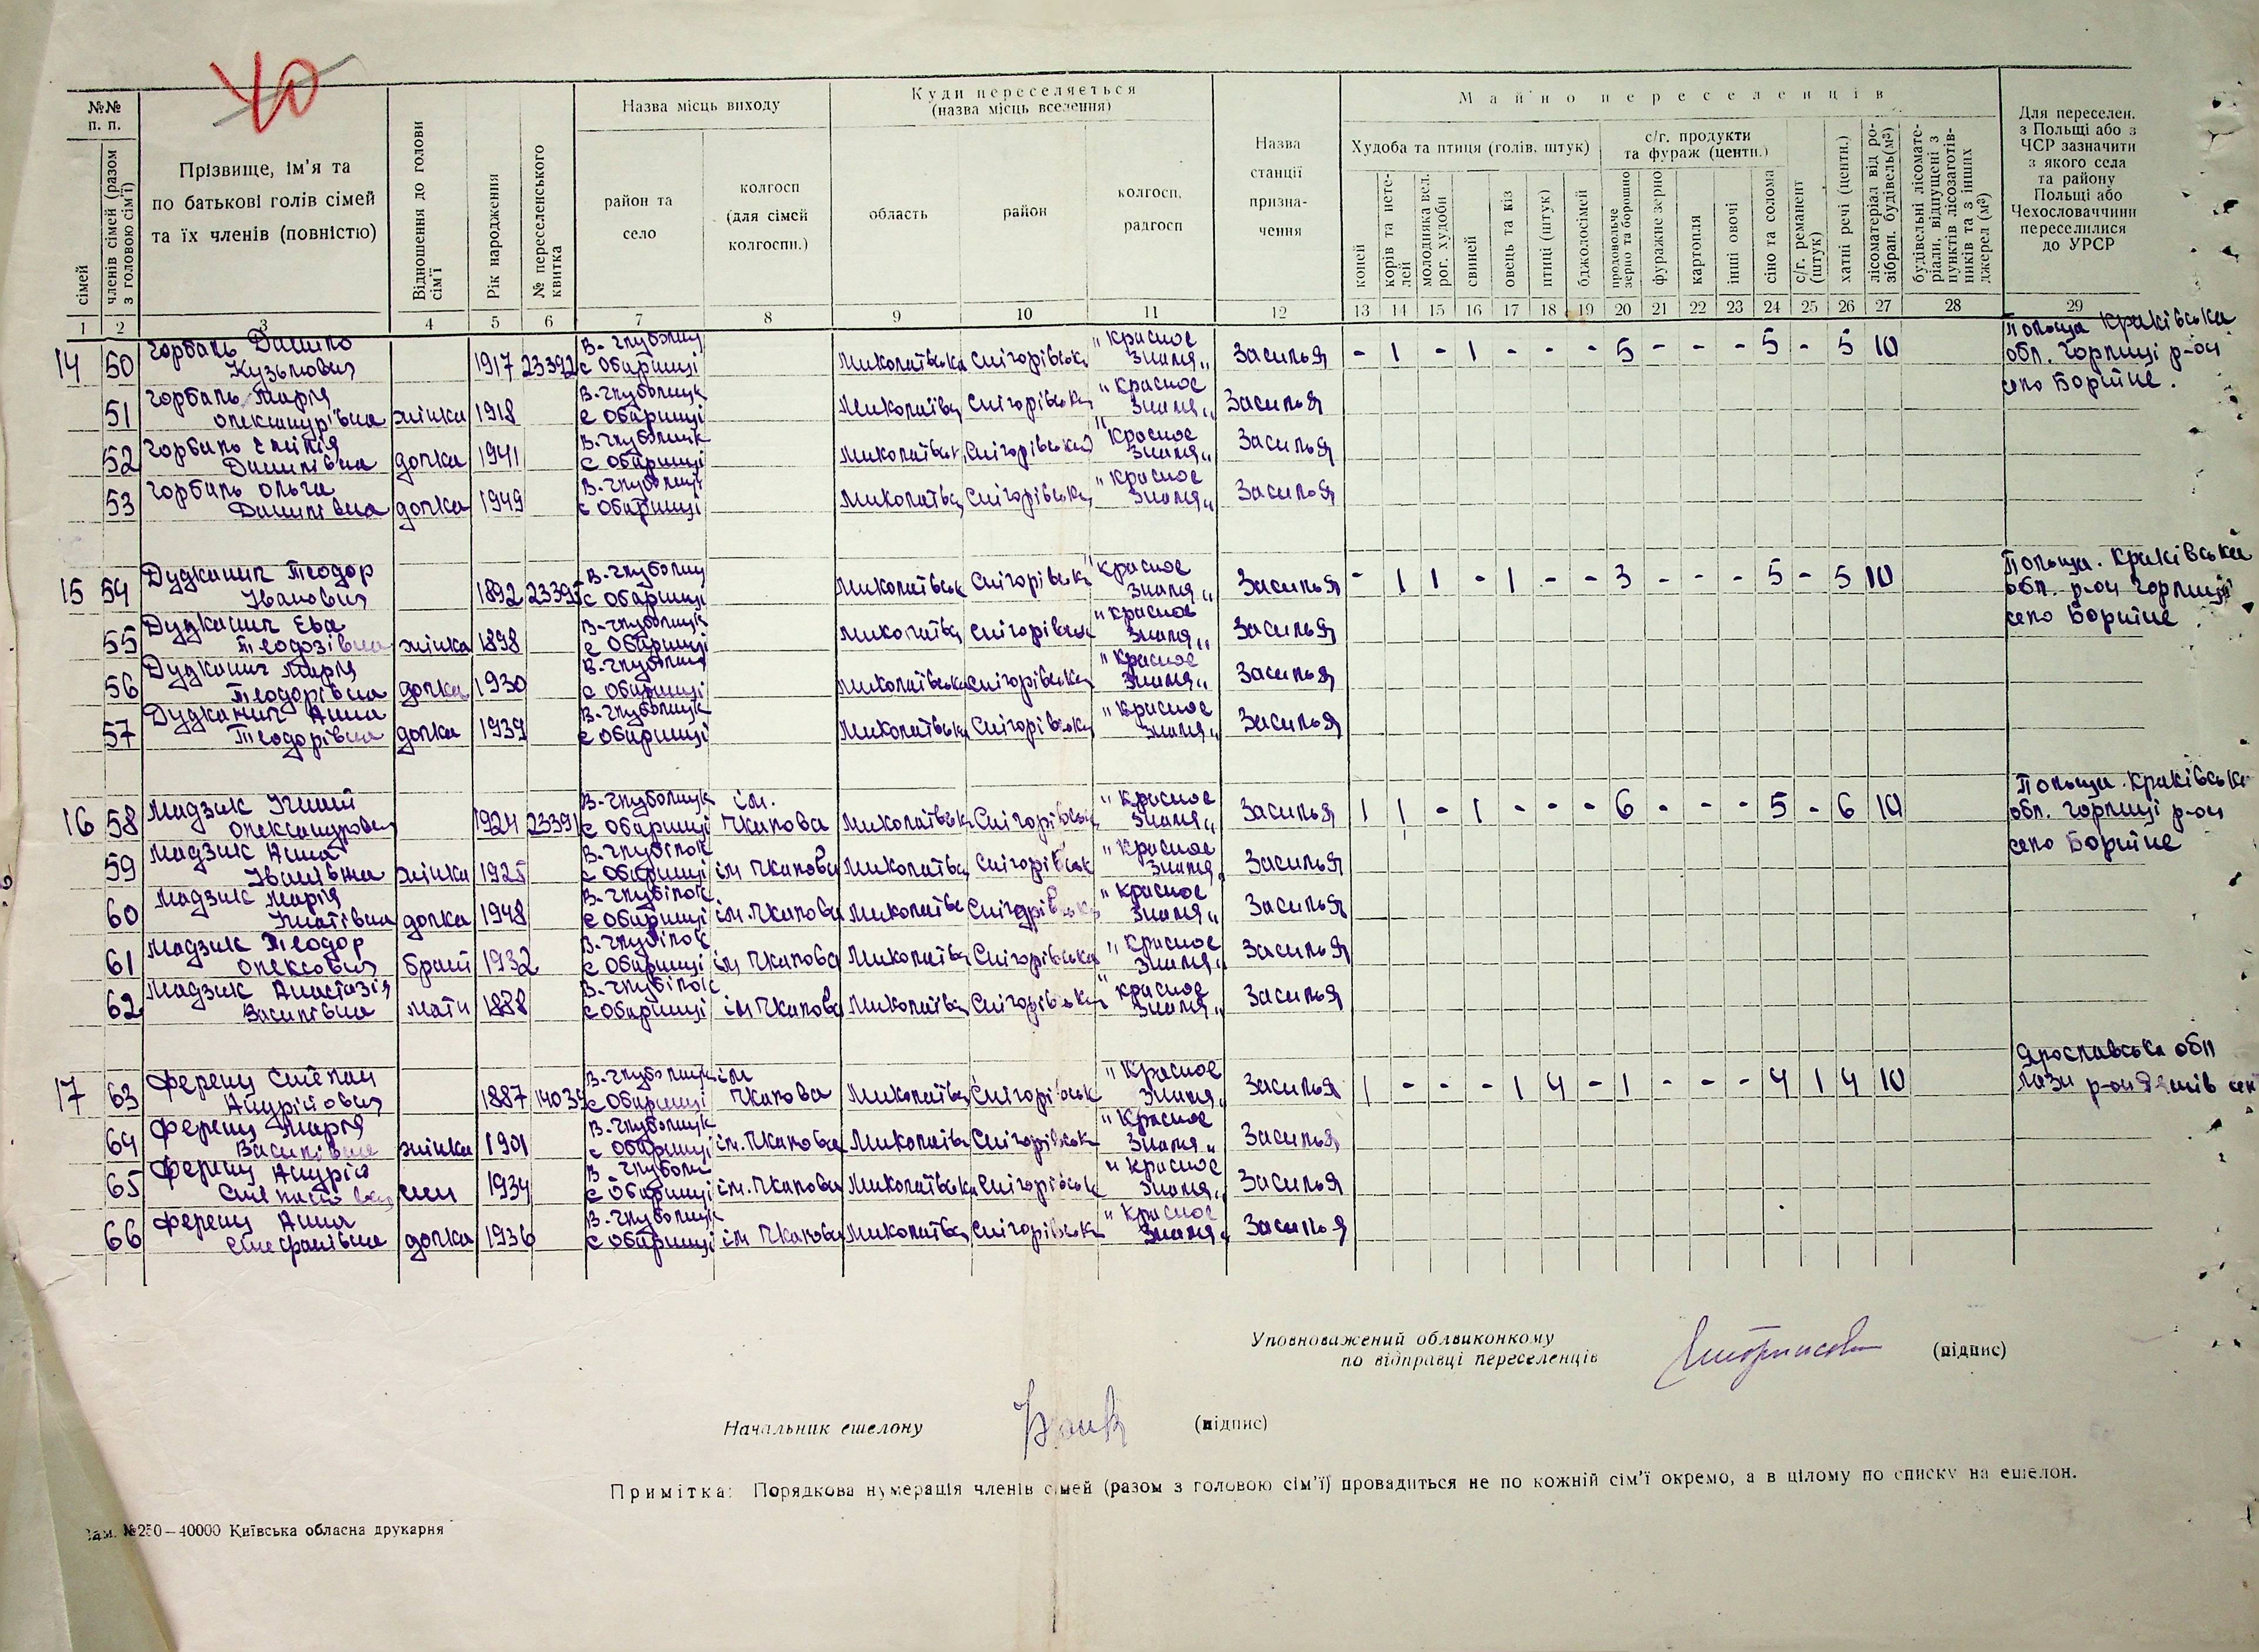 40
№№ п. п.
сімей
членів сімей (разом з головою сім'ї)
Прізвище, ім'я та
по батькові голів сімей
та їх членів (повністю)
Відношення до голови сім'ї
Рік народження
№ переселенського квитка
Назва місць виходу
район та
село
колгосп
(для сімей
колгоспн.)
Куди переселяється
(назва місць вселення)
область
район
колгосп,
радгосп
Назва
станції
призна-
чення
Майно переселенців
Худоба та птиця (голів, штук)
коней
корів та нете-
лей
молодняка вел.
рог. худоби
свиней
овець та кіз
птиці (штук)
бджолосімей
с/г. продукти
та фураж (центн.)
продовольче
зерно та борошно
фуражне зерно
картопля
інші овочі
сіно та солома
с/г. реманент
(штук)
хатні речі (центн.)
лісоматеріал від ро-
зібран. будівель (м³)
будівельні лісомате-
ріали, відпущені з
пунктів лісозаготів-
ників та з інших
джерел (м³)
Для переселен.
з Польщі або з
ЧСР зазначити
з якого села
та району
Польщі або
Чехословаччини
переселилися
до УРСР
1 2 3 4 5 6 7 8 9 10 11 12 13 14 15 16 17 18 19 20 21 22 23 24 25 26 27 28 29
14 50 Горбаль Данило Кузьмович 1917 23392 В-Глубочиц с Обаринці Миколаївська Снігорівськ "Красное Знамя" Засилья - 1 - 1 - - - 5 - - - 5 - 5 10 Польща Краківська обл. Горлиці р-он село Борітне.
51 Горбаль Марія Олександрівна жінка 1918 В-Глубочицк с Обаринці Миколаївсь Снігорівськ "Красное Знамя" Засилья
52 Горбаль Данилівна дочка 1941 В-Глубочицк с Обаринці Миколаївсь Снігорівський "Красное Знамя" Засилья
53 Горбаль Ольга Данилівна дочка 1949 В-Глубочиц с Обаринці Миколаївсь Снігорівськ "Красное Знамя" Засилья
15 54 Дудканич Теодор Іванович 1892 23395 В-Глубочиц с Обаринці Миколаївськ Снігорівськ "Красное Знамя" Засилья - 1 1 - 1 - - 3 - - - 5 - 5 10 Польща. Краківська обл. р-он Горлиці село Борітне
55 Дудканич Ева Теодозівна жінка 1898 В-Глубочицк с Обаринці Миколаївсь Снігорівськ "Красное Знамя" Засилья
56 Дудканич Марія Теодорівна дочка 1930 В-Глубочиц с Обаринці Миколаївська Снігорівськ "Красное Знамя" Засилья
57 Дудканич Анна Теодорівна дочка 1939 В-Глубочицк с Обаринці Миколаївськ Снігорівськ "Красное Знамя" Засилья
16 58 Мадзик Ігнат Олександрович 1924 23391 В-Глубочицк с Обаринці ім. Чкалова Миколаївськ Снігорівськ "Красное Знамя" Засилья 1 1 - 1 - - - 6 - - - 5 - 6 10 Польща. Краківська обл. Горлиці р-он село Борітне
59 Мадзик Анна Іванівна жінка 1925 В-Глубіпок с Обаринці ім Чкалова Миколаївсь Снігорівськ "Красное Знамя" Засилья
60 Мадзик Марія Ігнатівна дочка 1948 В-Глубіпок с Обаринці ім. Чкалова Миколаївсь Снігорівськ "Красное Знамя" Засилья
61 Мадзик Теодор Олексович брат 1932 В-Глубіпок с Обаринці ім Чкалова Миколаївсь Снігорівська "Красное Знамя" Засилья
62 Мадзик Анастазія Василівна мати 1888 В-Глубіпок с Обаринці ім Чкалова Миколаївсь Снігорівськ "Красное Знамя" Засилья
17 63 Ференц Степан Андрійович 1887 В-Глубочицк с Обаринці ім Чкалова Миколаївсь Снігорівськ "Красное Знамя" Засилья 1 - - - 1 4 - 1 - - - 4 1 4 10 Ярославська обл Лази р-он
64 Ференц Марія Василівна жінка 1901 В-Глубочицк с Обаринці ім. Чкалова Миколаївсь Снігорівськ "Красное Знамя" Засилья
65 Ференц Андрій Степанович син 1934 В Глубочи с Обаринці ім. Чкалова Миколаївська Снігорівськ "Красное Знамя" Засилья
66 Ференц Анна Стефанівна дочка 1936 В-Глубочицк с Обаринці ім Чкалова Миколаївсь Снігорівськ "Красное Знамя" Засилья
Уповноважений облвиконкому
по відправці переселенців (підпис)
Начальник ешелону (підпис)
Примітка: Порядкова нумерація членів сімей (разом з головою сім'ї) провадиться не по кожній сім'ї окремо, а в цілому по списку на ешелон.
Зам. №250—40000 Київська обласна друкарня